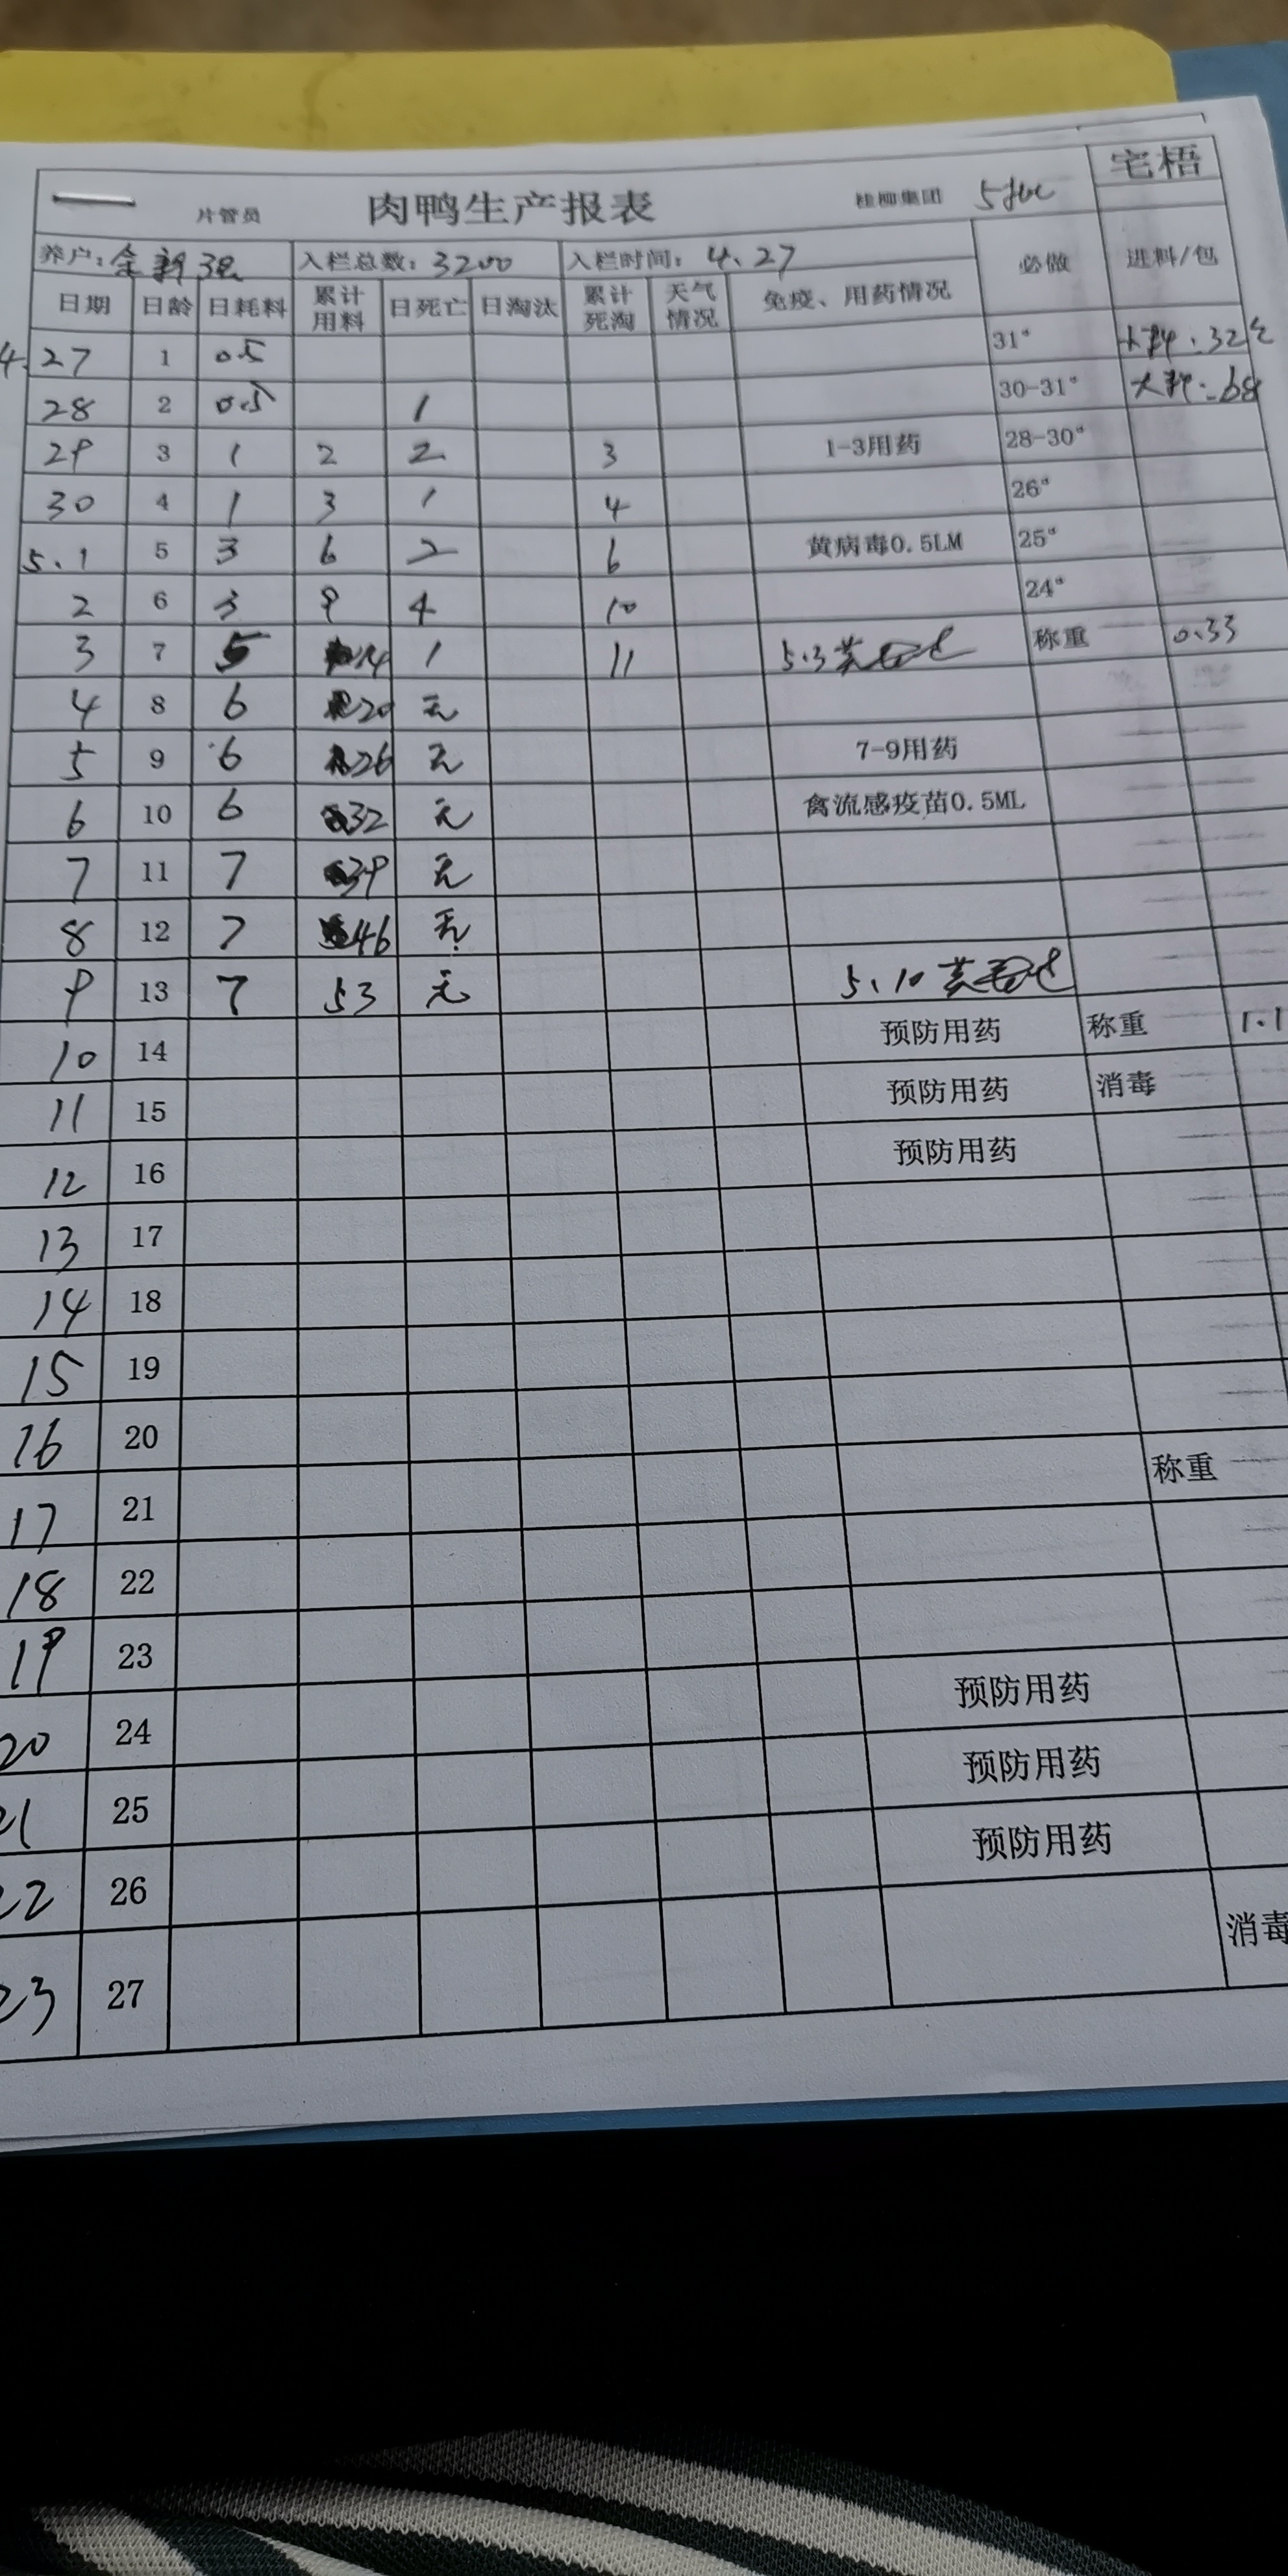 宅梧
片管员 肉鸭生产报表 桂柳集团
养户: 余新强 入栏总数: 3200 入栏时间: 4.27 必做 进料/包
日期 日龄 日耗料 累计用料 日死亡 日淘汰 累计死淘 天气情况 免疫、用药情况
4.27 1 0.5 31° 小料.32包
28 2 0.5 1 30-31° 大料.68
29 3 1 2 2 3 1-3用药 28-30°
30 4 1 3 1 4 26°
5.1 5 3 6 2 6 黄病毒0.5LM 25°
2 6 3 9 4 10 24°
3 7 5 14 1 11 5.3 称重 0.33
4 8 6 20 无
5 9 6 26 无 7-9用药
6 10 6 32 无 禽流感疫苗0.5ML
7 11 7 39 无
8 12 7 46 无
9 13 7 53 无 5.10
10 14 预防用药 称重 1.1
11 15 预防用药 消毒
12 16 预防用药
13 17
14 18
15 19
16 20
17 21 称重
18 22
19 23
20 24 预防用药
21 25 预防用药
22 26 预防用药
23 27 消毒